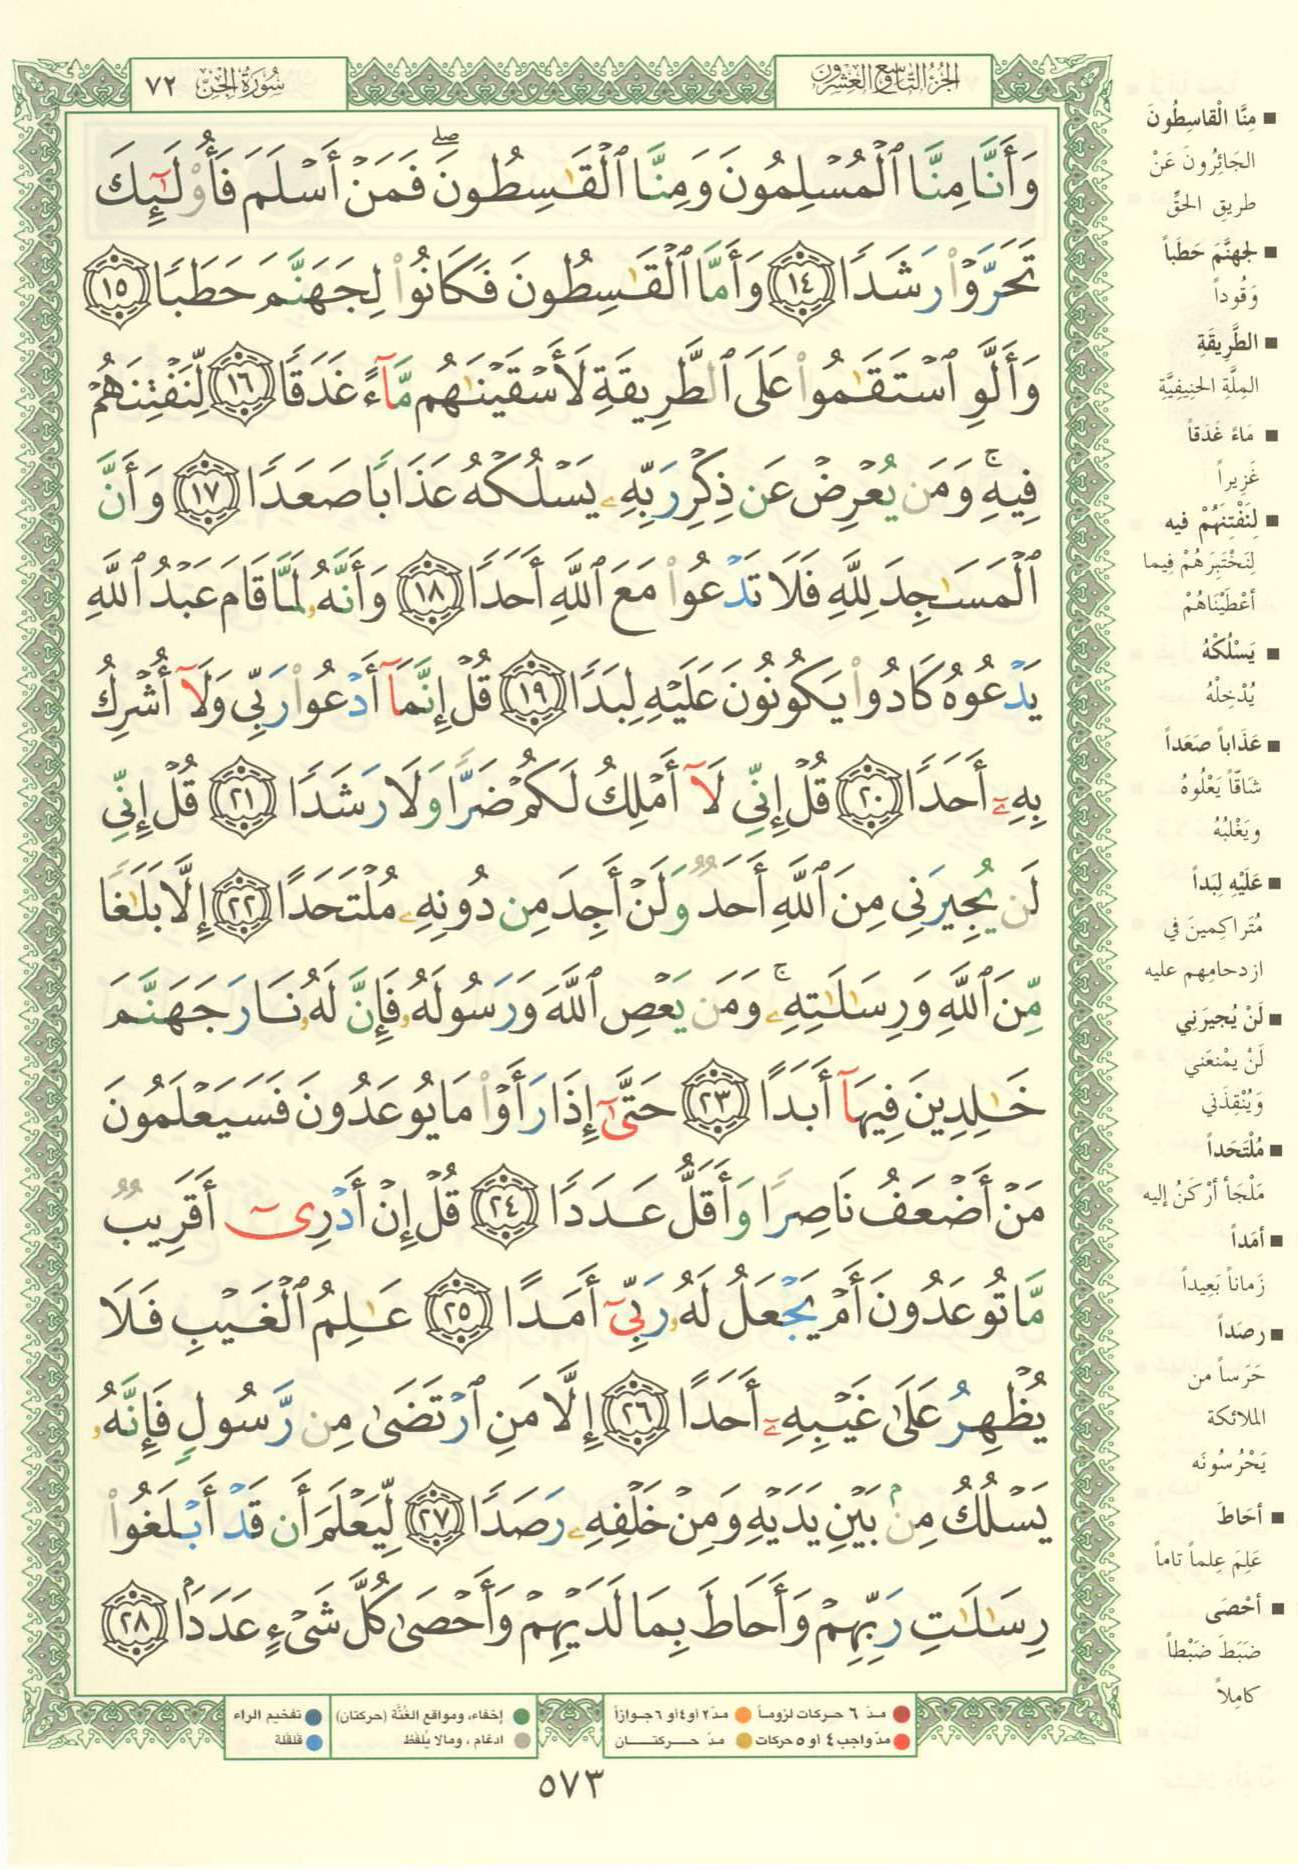 سُورَةُ الجِنّ ٧٢
الجُزْءُ التَّاسِعُ وَالعِشْرُونَ
وَأَنَّا مِنَّا ٱلْمُسْلِمُونَ وَمِنَّا ٱلْقَٰسِطُونَ ۖ فَمَنْ أَسْلَمَ فَأُو۟لَٰٓئِكَ
تَحَرَّوْا۟ رَشَدًا ١٤ وَأَمَّا ٱلْقَٰسِطُونَ فَكَانُوا۟ لِجَهَنَّمَ حَطَبًا ١٥
وَأَلَّوِ ٱسْتَقَٰمُوا۟ عَلَى ٱلطَّرِيقَةِ لَأَسْقَيْنَٰهُم مَّآءً غَدَقًا ١٦ لِّنَفْتِنَهُمْ
فِيهِ ۚ وَمَن يُعْرِضْ عَن ذِكْرِ رَبِّهِۦ يَسْلُكْهُ عَذَابًا صَعَدًا ١٧ وَأَنَّ
ٱلْمَسَٰجِدَ لِلَّهِ فَلَا تَدْعُوا۟ مَعَ ٱللَّهِ أَحَدًا ١٨ وَأَنَّهُۥ لَمَّا قَامَ عَبْدُ ٱللَّهِ
يَدْعُوهُ كَادُوا۟ يَكُونُونَ عَلَيْهِ لِبَدًا ١٩ قُلْ إِنَّمَآ أَدْعُوا۟ رَبِّى وَلَآ أُشْرِكُ
بِهِۦٓ أَحَدًا ٢٠ قُلْ إِنِّى لَآ أَمْلِكُ لَكُمْ ضَرًّا وَلَا رَشَدًا ٢١ قُلْ إِنِّى
لَن يُجِيرَنِى مِنَ ٱللَّهِ أَحَدٌ وَلَنْ أَجِدَ مِن دُونِهِۦ مُلْتَحَدًا ٢٢ إِلَّا بَلَٰغًا
مِّنَ ٱللَّهِ وَرِسَٰلَٰتِهِۦ ۚ وَمَن يَعْصِ ٱللَّهَ وَرَسُولَهُۥ فَإِنَّ لَهُۥ نَارَ جَهَنَّمَ
خَٰلِدِينَ فِيهَآ أَبَدًا ٢٣ حَتَّىٰٓ إِذَا رَأَوْا۟ مَا يُوعَدُونَ فَسَيَعْلَمُونَ
مَنْ أَضْعَفُ نَاصِرًا وَأَقَلُّ عَدَدًا ٢٤ قُلْ إِنْ أَدْرِىٓ أَقَرِيبٌ
مَّا تُوعَدُونَ أَمْ يَجْعَلُ لَهُۥ رَبِّىٓ أَمَدًا ٢٥ عَٰلِمُ ٱلْغَيْبِ فَلَا
يُظْهِرُ عَلَىٰ غَيْبِهِۦٓ أَحَدًا ٢٦ إِلَّا مَنِ ٱرْتَضَىٰ مِن رَّسُولٍ فَإِنَّهُۥ
يَسْلُكُ مِنۢ بَيْنِ يَدَيْهِ وَمِنْ خَلْفِهِۦ رَصَدًا ٢٧ لِّيَعْلَمَ أَن قَدْ أَبْلَغُوا۟
رِسَٰلَٰتِ رَبِّهِمْ وَأَحَاطَ بِمَا لَدَيْهِمْ وَأَحْصَىٰ كُلَّ شَىْءٍ عَدَدًۢا ٢٨
■ مِنَّا الْقَاسِطُونَ
الجَائِرُونَ عَنْ
طريقِ الحقِّ
■ لجهنَّمَ حَطَباً
وَقُوداً
■ الطَّرِيقَةِ
المِلَّةِ الحَنِيفِيَّة
■ مَاءً غَدَقاً
غَزِيراً
■ لِنَفْتِنَهُمْ فيه
لِنَخْتَبِرَهُمْ فِيما
أعْطَيْنَاهُمْ
■ يَسْلُكْهُ
يُدْخِلْهُ
■ عَذَاباً صَعَداً
شَاقّاً يَعْلُوهُ
ويَغْلِبُهُ
■ عَلَيْهِ لِبَداً
مُتَراكِمينَ في
ازدحامِهم عليه
■ لَنْ يُجيرَنِي
لَنْ يمْنعَني
وَيُنْقِذَني
■ مُلْتَحَداً
مَلْجَأً أرْكَنُ إليه
■ أمَداً
زَماناً بَعِيداً
■ رصَداً
حَرَساً من
الملائكة
يَحْرُسُونَه
■ أحَاطَ
عَلِمَ عِلماً تاماً
■ أحْصَى
ضَبَطَ ضَبْطاً
كامِلاً
مدّ ٦ حركات لزوماً مدّ ٢ او ٤ او ٦ جوازاً
مدّ واجب ٤ او ٥ حركات مدّ حركتان
إخفاء، ومواقع الغُنَّة (حركتان)
ادغام ، ومالا يُلفَظ
تفخيم الراء
قلقلة
٥٧٣